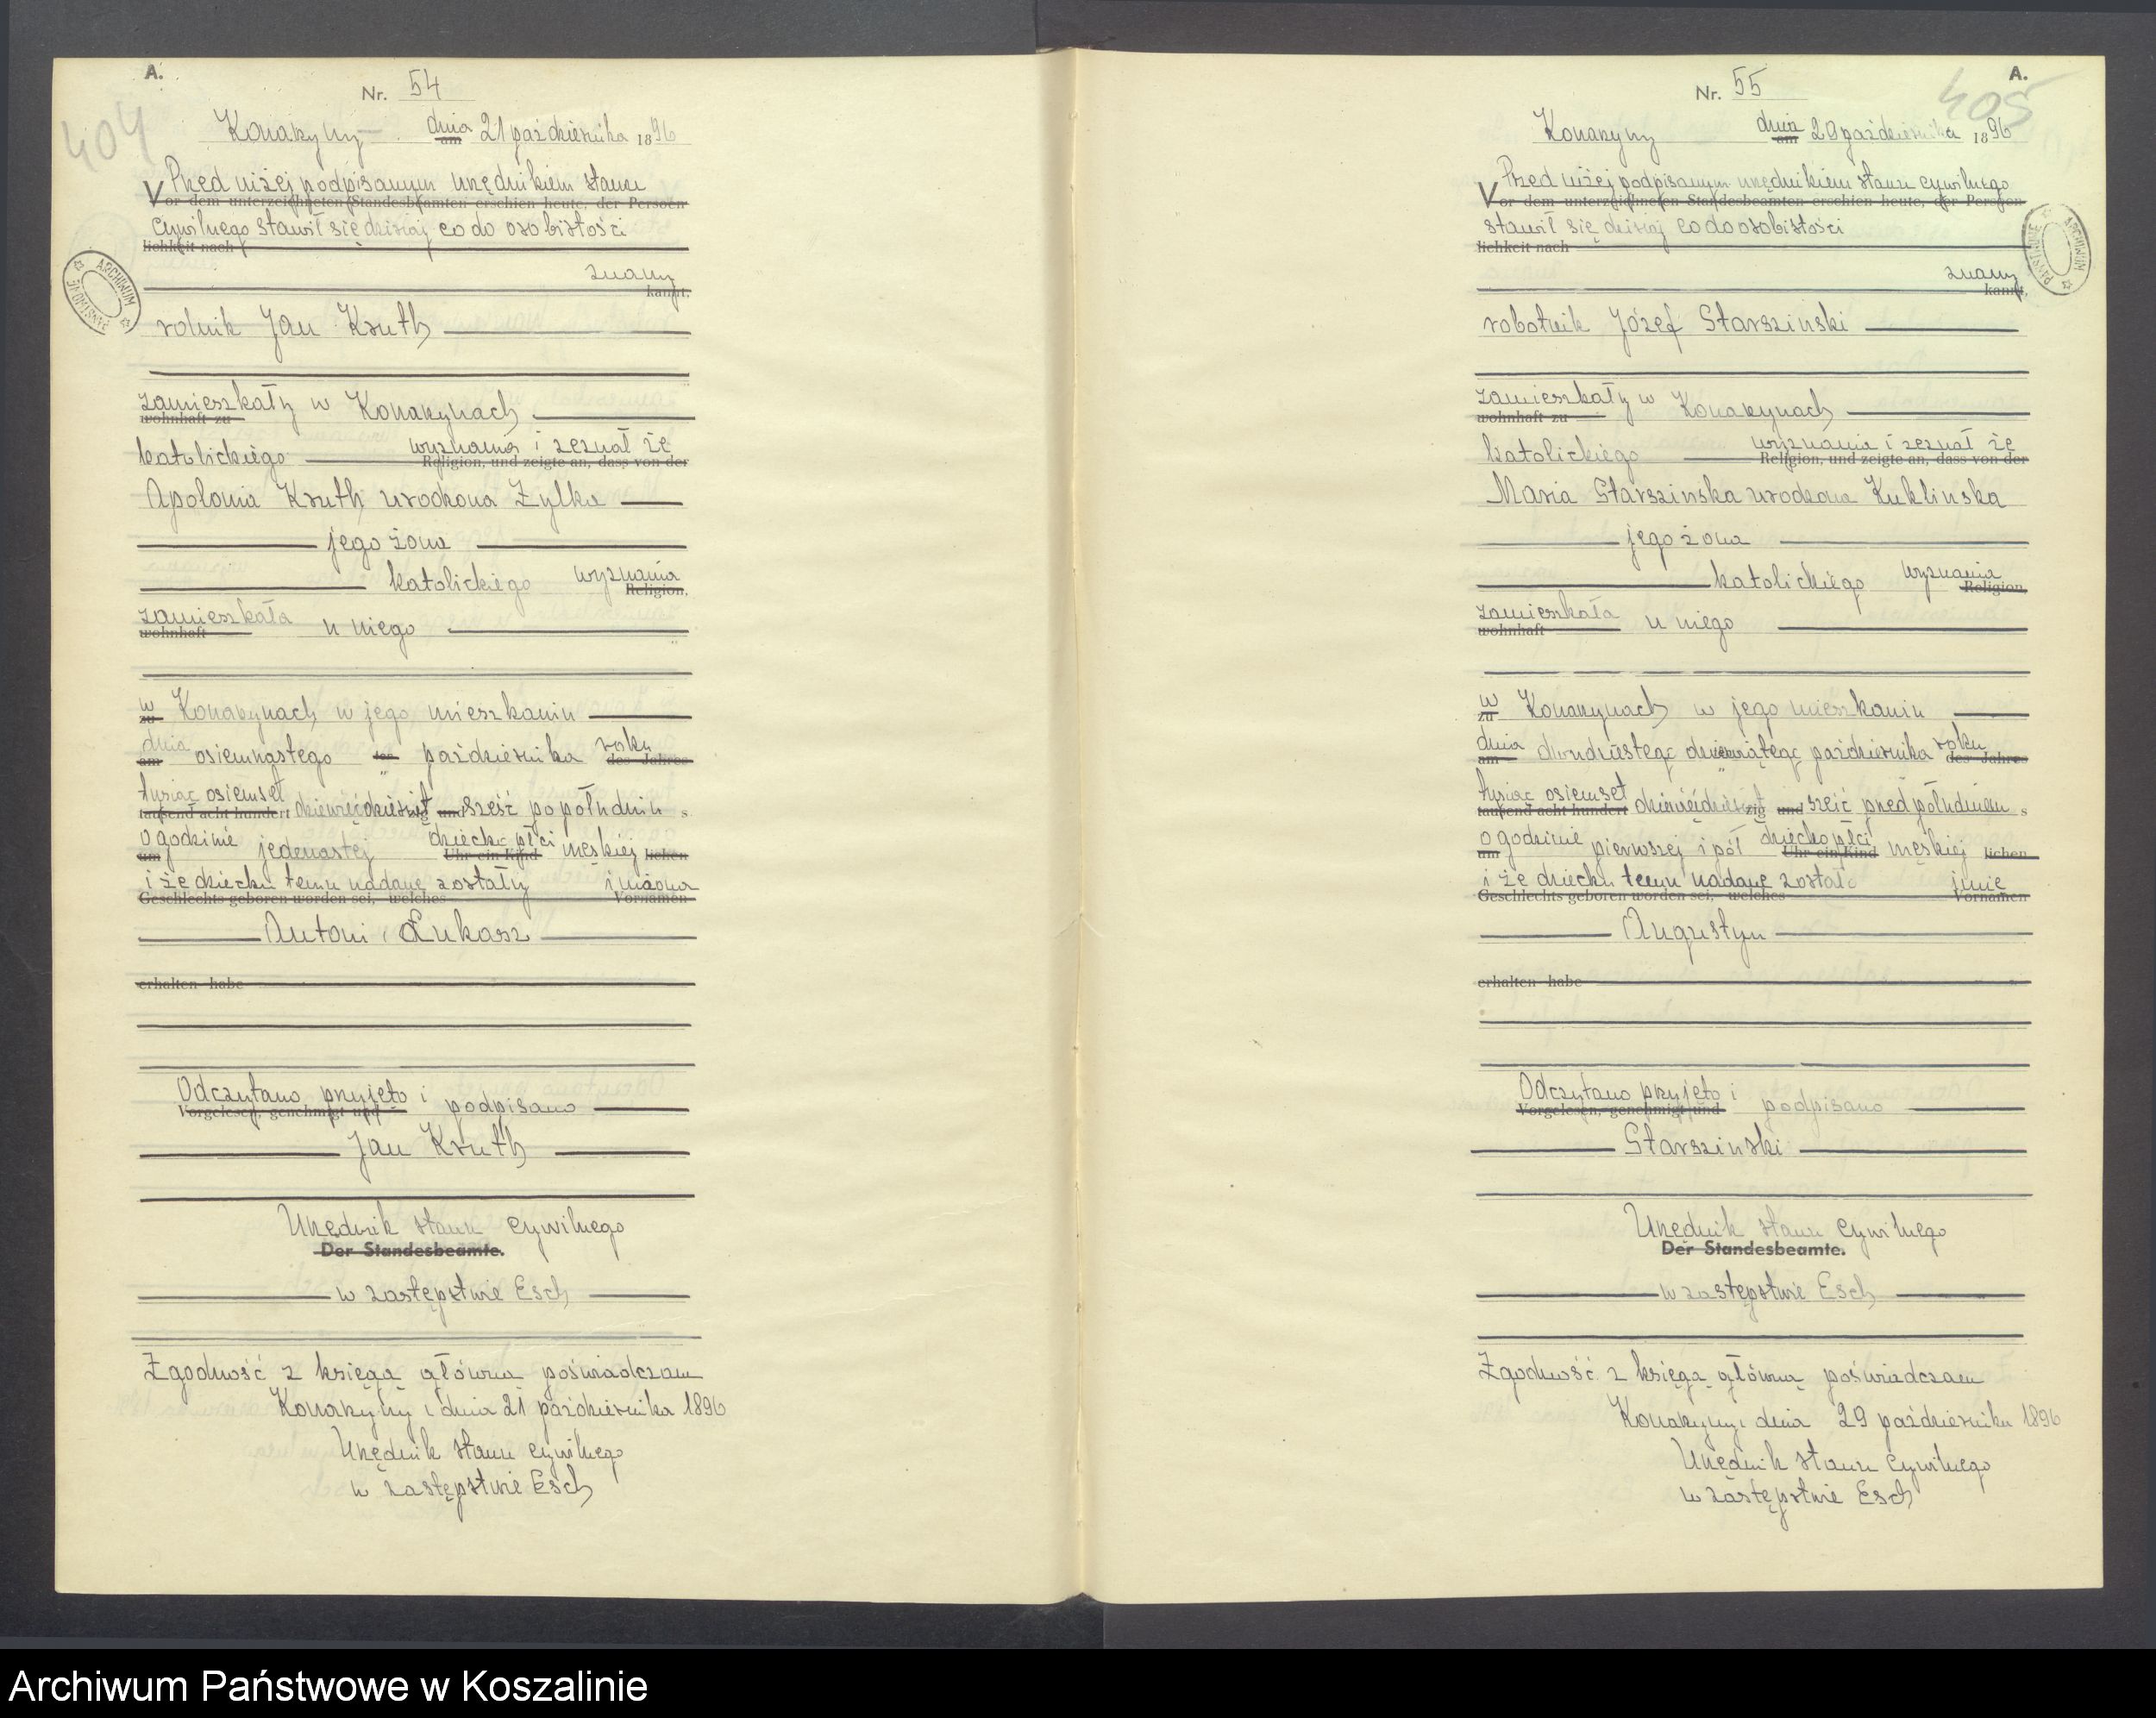 A.
Nr. 54
404
Konarzyny dnia am 21 października 1896
Przed niżej podpisanym urzędnikiem stanu
Vor dem unterzeichneten Standesbeamten erschien heute, der Persoen-
cywilnego stawił się dzisiaj co do osobistości
lichkeit nach
znany
kannt,
rolnik Jan Kruth
zamieszkały w Konarzynach
wohnhaft zu
katolickiego wyznania i zeznał że
Religion, und zeigte an, dass von der
Apolonia Kruth urodzona Zylka
jego żona
katolickiego wyznania
Religion,
zamieszkała u niego
wohnhaft
w Konarzynach w jego mieszkaniu
zu
dnia osiemnastego października roku
am des Jahres
tysiąc osiemset dziewięćdziesiąt sześć popołudniu
tausend acht hundert und s
o godzinie jedenastej dziecko płci męskiej
um Uhr ein Kind lichen
i że dziecku temu nadane zostały imiona
Geschlechts geboren worden sei, welches Vornamen
Antoni Łukasz
erhalten habe
Odczytano, przyjęto i podpisano
Vorgelesen, genehmigt und
Jan Kruth
Urzędnik stanu cywilnego
Der Standesbeamte.
w zastępstwie Esch
Zgodność z księgą główną poświadczam
Konarzyny, dnia 21 października 1896
Urzędnik stanu cywilnego
w zastępstwie Esch
A.
Nr. 55
405
Konarzyny dnia am 29 października 1896
Przed niżej podpisanym urzędnikiem stanu cywilnego
Vor dem unterzeichneten Standesbeamten erschien heute, der Persoen-
stawił się dzisiaj co do osobistości
lichkeit nach
znany
kannt,
robotnik Józef Starszinski
zamieszkały w Konarzynach
wohnhaft zu
katolickiego wyznania i zeznał że
Religion, und zeigte an, dass von der
Maria Starszinska urodzona Kuklinska
jego żona
katolickiego wyznania
Religion,
zamieszkała u niego
wohnhaft
w Konarzynach w jego mieszkaniu
zu
dnia dwudziestego dziewiątego października roku
am des Jahres
tysiąc osiemset dziewięćdziesiąt sześć przed południem
tausend acht hundert zig und s
o godzinie pierwszej i pół dziecko płci męskiej
um Uhr ein Kind lichen
i że dziecku temu nadane zostało imię
Geschlechts geboren worden sei, welches Vornamen
Augustyn
erhalten habe
Odczytano przyjęto i podpisano
Vorgelesen, genehmigt und
Starszinski
Urzędnik stanu cywilnego
Der Standesbeamte.
w zastępstwie Esch
Zgodność z księgą główną poświadczam
Konarzyny, dnia 29 października 1896
Urzędnik stanu cywilnego
w zastępstwie Esch
ARCHIWUM PAŃSTWOWE
ARCHIWUM PAŃSTWOWE
Archiwum Państwowe w Koszalinie